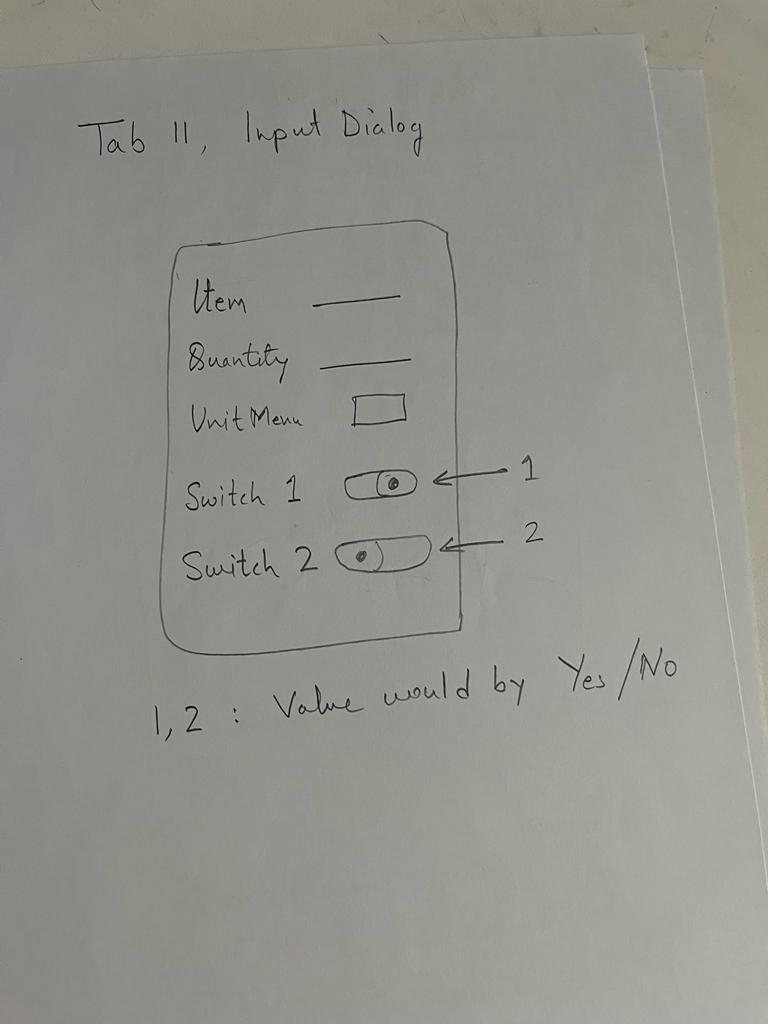 Tab 11, Input Dialog
Item
Quantity
Unit Menu
Switch 1 1
Switch 2 2
1, 2 : Value would by Yes/No